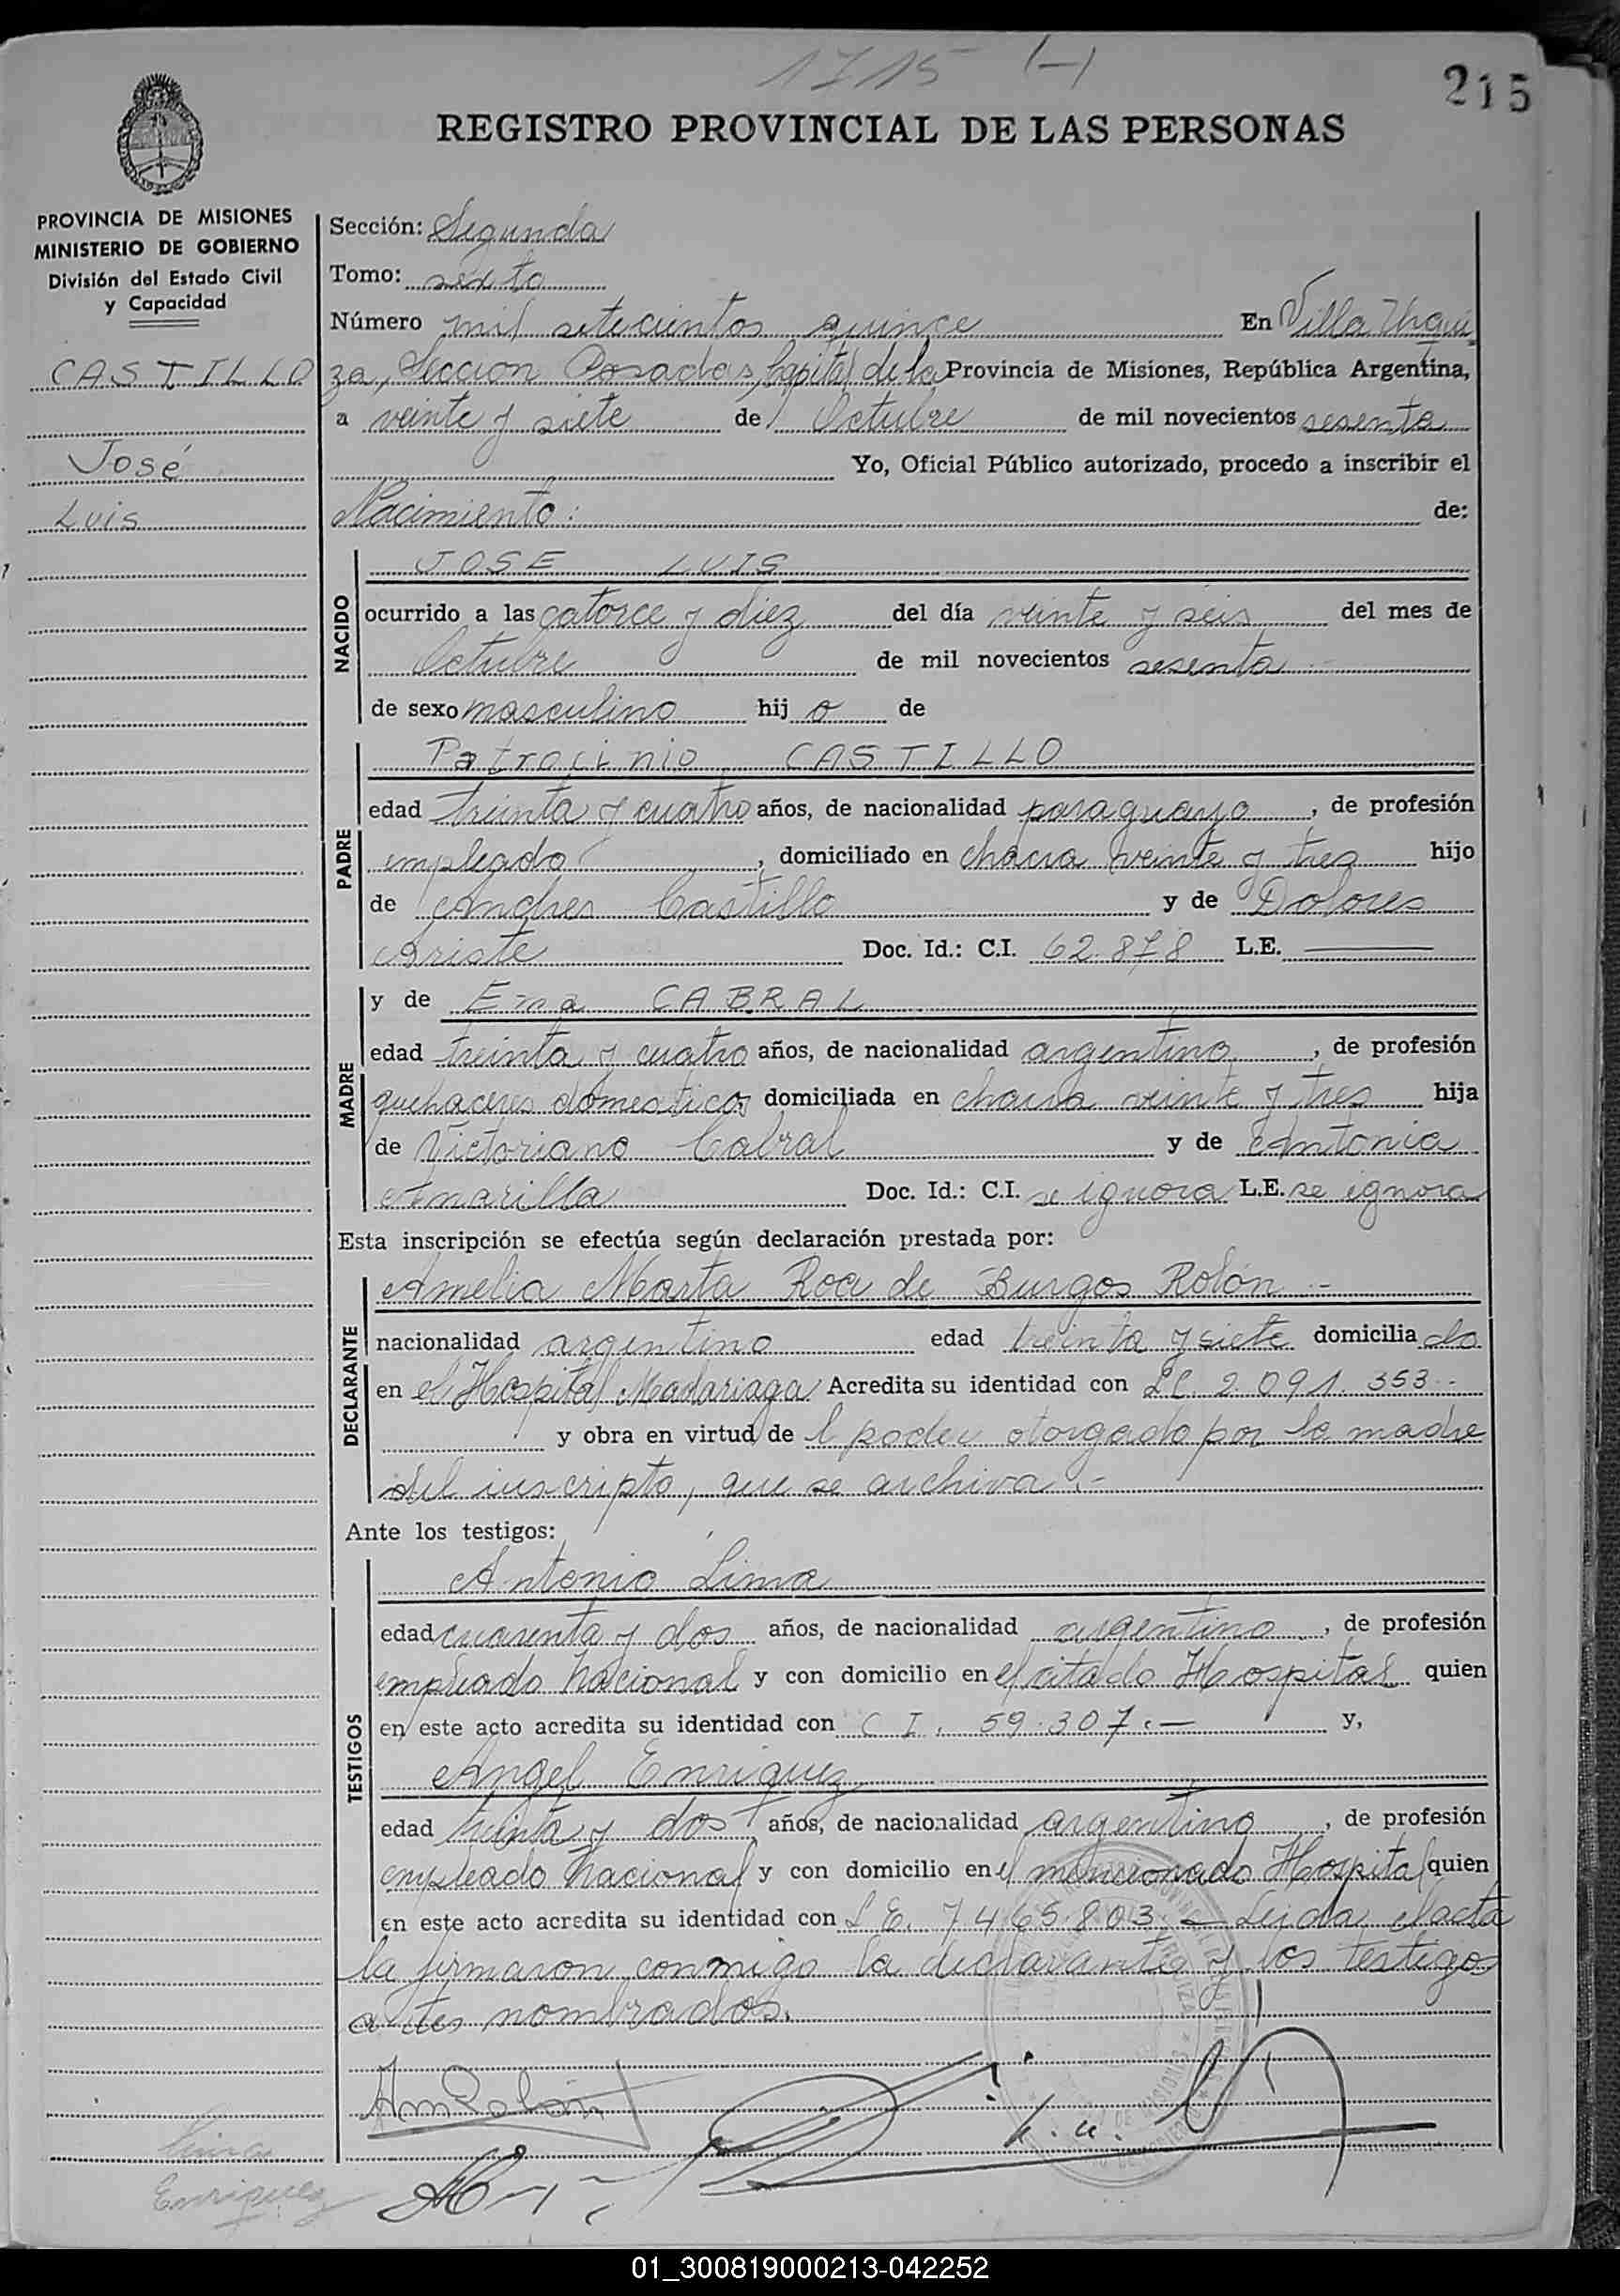 1715 (-)
215
REGISTRO PROVINCIAL DE LAS PERSONAS
PROVINCIA DE MISIONES
MINISTERIO DE GOBIERNO
División del Estado Civil
y Capacidad
CASTILLO
José
Luis
Sección: Segunda
Tomo: sexto
Número mil setecientos quince En Villa Urqui
za, Seccion Posadas, Capital de la Provincia de Misiones, República Argentina,
a veinte y siete de Octubre de mil novecientos sesenta
Yo, Oficial Público autorizado, procedo a inscribir el
Nacimiento: de:
NACIDO
JOSE LUIS
ocurrido a las catorce y diez del día veinte y seis del mes de
Octubre de mil novecientos sesenta
de sexo masculino hij o de
PADRE
Patrocinio CASTILLO
edad treinta y cuatro años, de nacionalidad paraguayo, de profesión
empleado, domiciliado en chacra veinte y tres hijo
de Andres Castillo y de Dolores
Ariste Doc. Id.: C.I. 62.878 L.E. ———
MADRE
y de Ema CABRAL
edad treinta y cuatro años, de nacionalidad argentina, de profesión
quehaceres domesticos domiciliada en chacra veinte y tres hija
de Victoriano Cabral y de Antonia
Amarilla Doc. Id.: C.I. se ignora L.E. se ignora
Esta inscripción se efectúa según declaración prestada por:
DECLARANTE
Amelia Marta Roa de Burgos Rolón .-
nacionalidad argentino edad treinta y siete domicilia da
en el Hospital Madariaga Acredita su identidad con L.C. 2.091.353.-
y obra en virtud de l poder otorgado por la madre
del inscripto, que se archiva.-
Ante los testigos:
TESTIGOS
Antonio Lima
edad cuarenta y dos años, de nacionalidad argentino, de profesión
empleado nacional y con domicilio en el citado Hospital quien
en este acto acredita su identidad con C I. 59.307.- y,
Angel Enriquez
edad treinta y dos años, de nacionalidad argentino, de profesión
empleado nacional y con domicilio en el mencionado Hospital quien
en este acto acredita su identidad con L E. 7.465.803.- Leida el acta
la firmaron conmigo la declarante y los testigos
a tes nombrados.
AmRolón
Lima
Enriquez
01_300819000213-042252